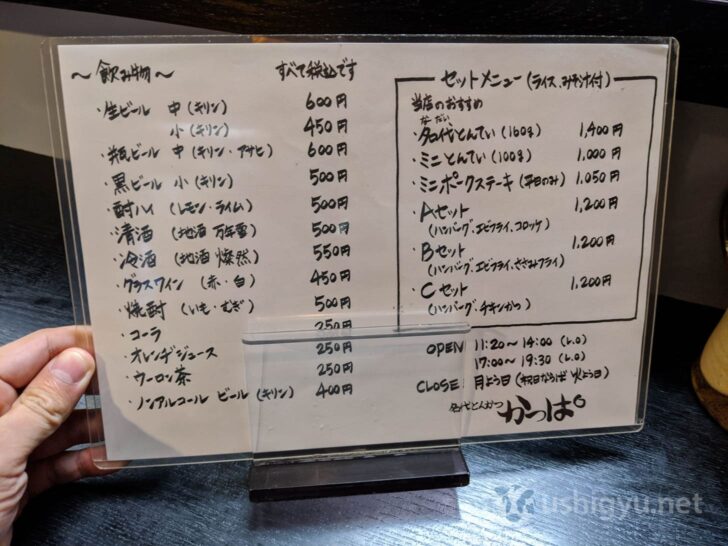 ～飲み物～ すべて税込です
・生ビール 中(キリン) 600円
小(キリン) 450円
・瓶ビール 中(キリン・アサヒ) 600円
・黒ビール 小(キリン) 500円
・酎ハイ (レモン・ライム) 500円
・清酒 (地酒 万年雪) 500円
・冷酒 (地酒 燦然) 550円
・グラスワイン (赤・白) 450円
・焼酎 (いも・むぎ) 500円
・コーラ 250円
・オレンヂジュース 250円
・ウーロン茶 250円
・ノンアルコール ビール (キリン) 400円
セットメニュー(ライス、みそ汁付)
当店のおすすめ
なだい
・名代とんてい(160g) 1,400円
・ミニとんてい(100g) 1,000円
・ミニポークステーキ(平日のみ) 1,050円
・Aセット 1,200円
(ハンバーグ、エビフライ、コロッケ)
・Bセット 1,200円
(ハンバーグ、エビフライ、ささみフライ)
・Cセット 1,200円
(ハンバーグ、チキンかつ)
OPEN 11:20～14:00 (L.O)
17:00～19:30 (L.O)
CLOSE 月よう日(祝日ならば 火よう日)
名代とんかつ かっぱ
ushigyu.net